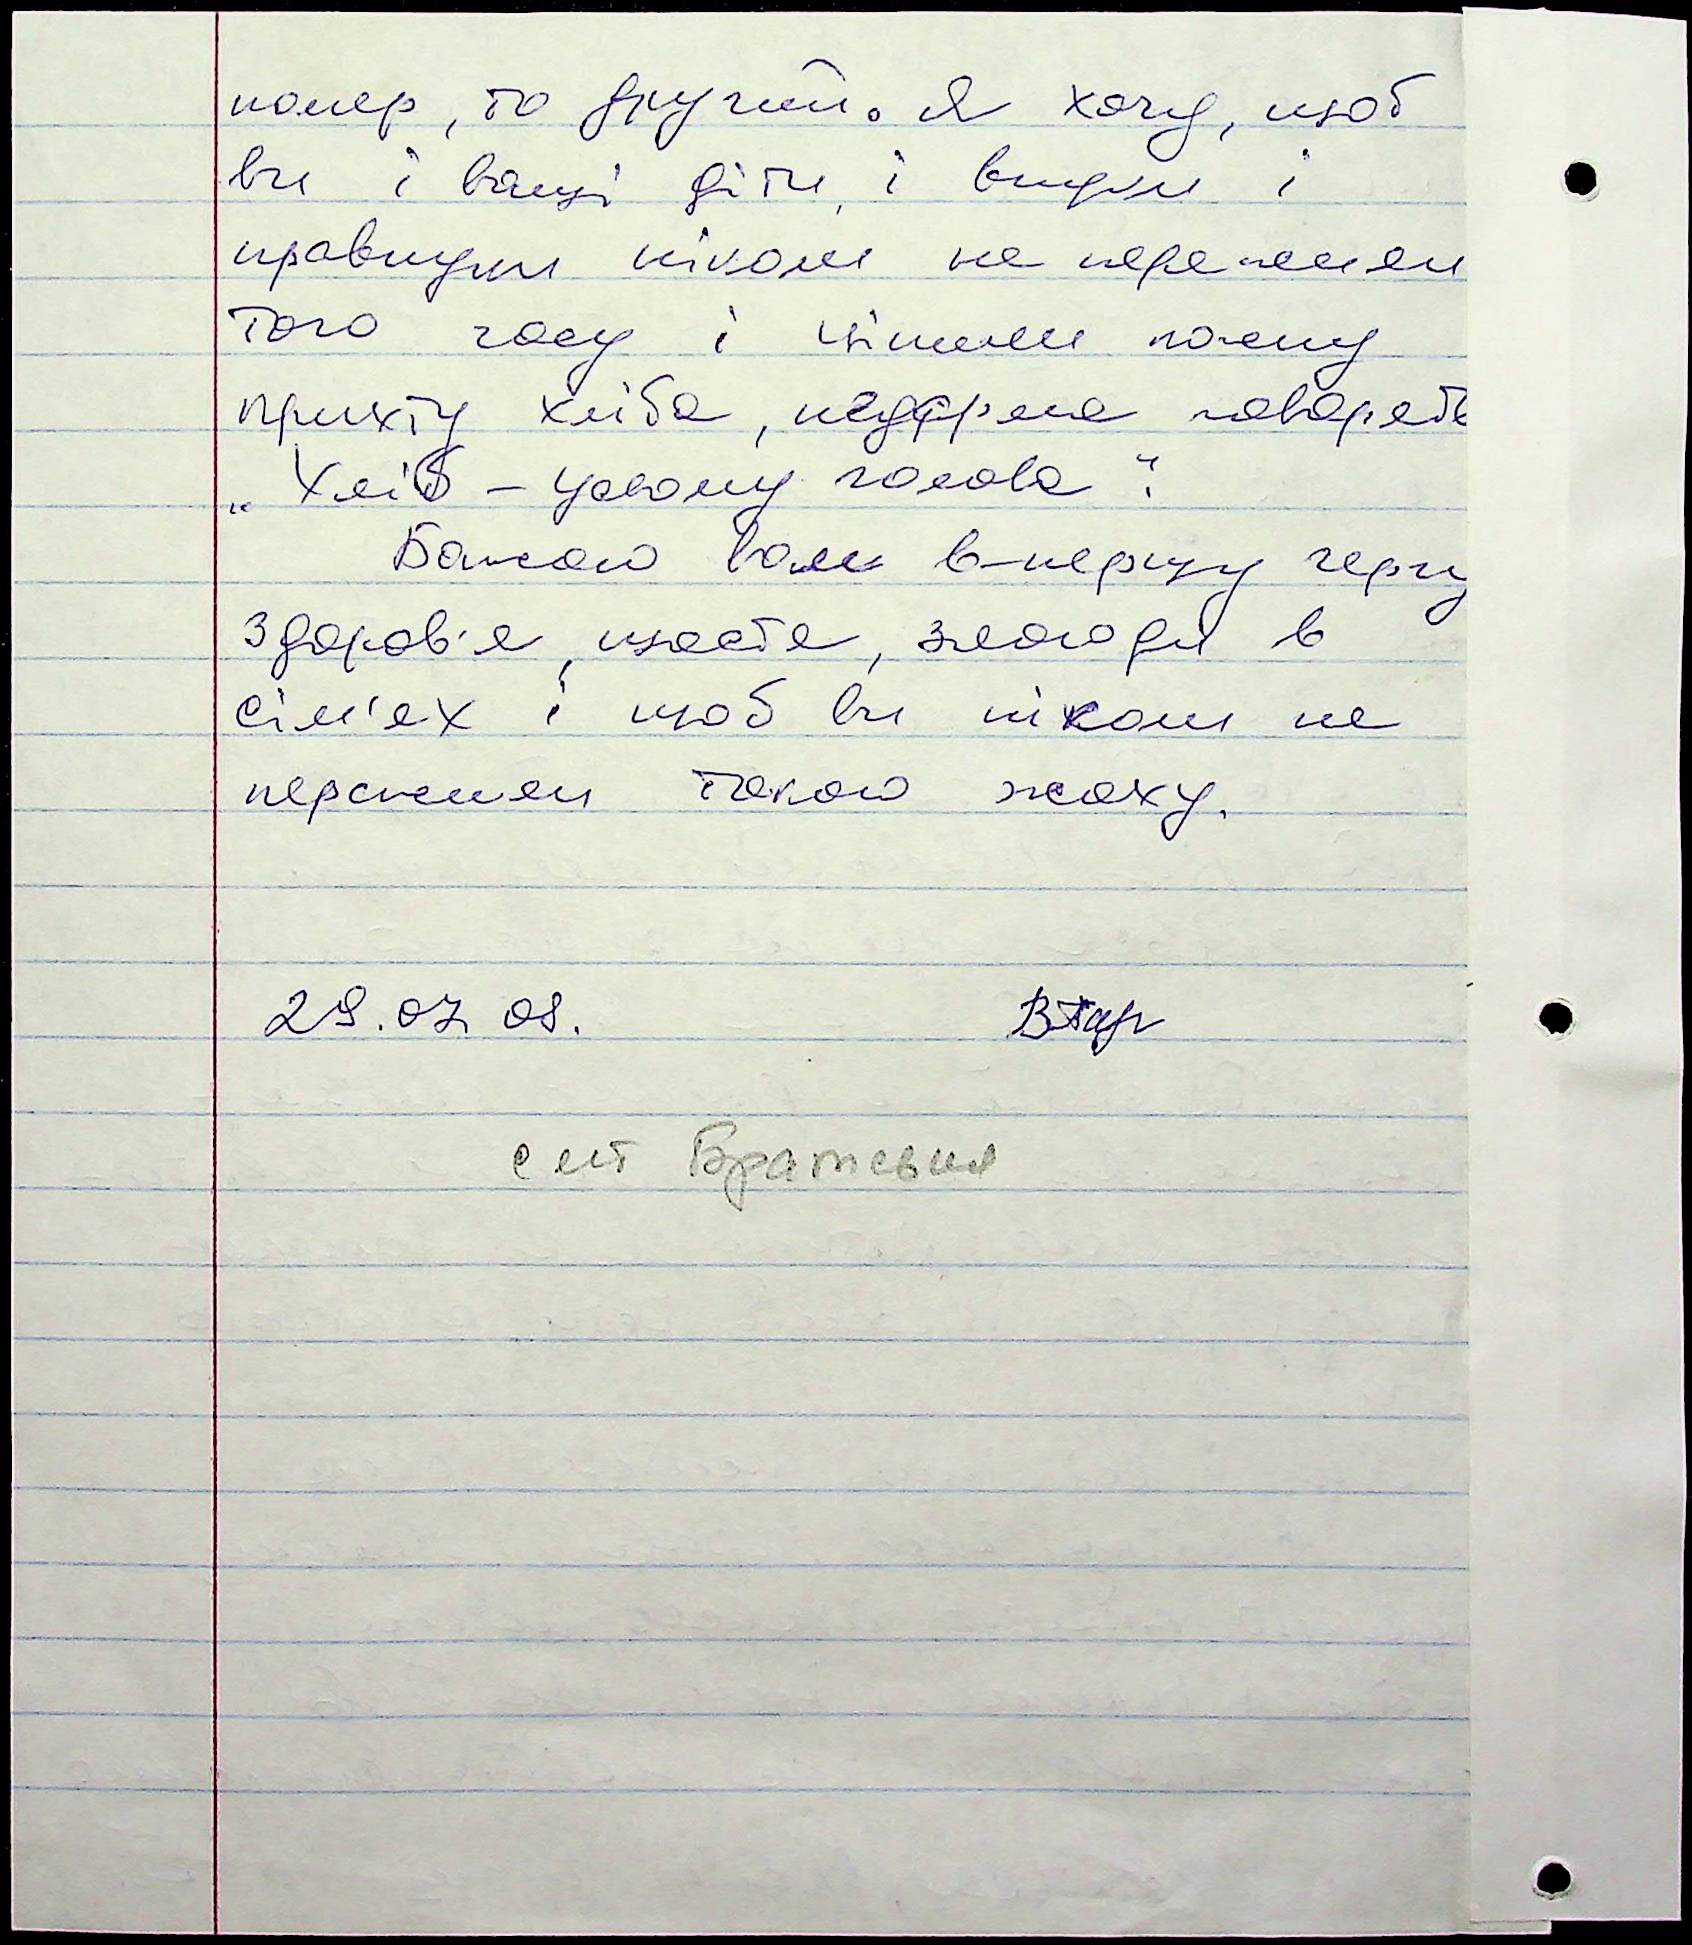 помер, то другий. Я хочу, щоб
ви і ваші діти, і внуки і
правнуки ніколи не пережили
того часу і цінили кожну
крихту хліба, недарма говорять
„Хліб – усьому голова“.
Бажаю вам в-першу чергу
здоров'я, щастя, злагоди в
сім'ях і щоб ви ніколи не
пережили такого жаху.
29.07.08.
смт Братське